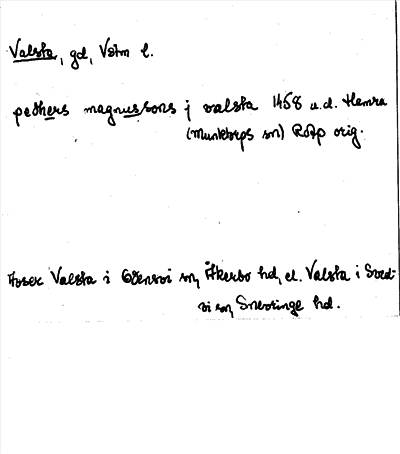 Valsta, gd, Vstm l.
pedhers magnussons j valsta 1458 u.d. Hemra
(Munktorps sn) RAp orig.
Avser Valsta i Odensvi sn, Åkerbo hd, el. Valsta i Sved-
vi sn, Snevringe hd.